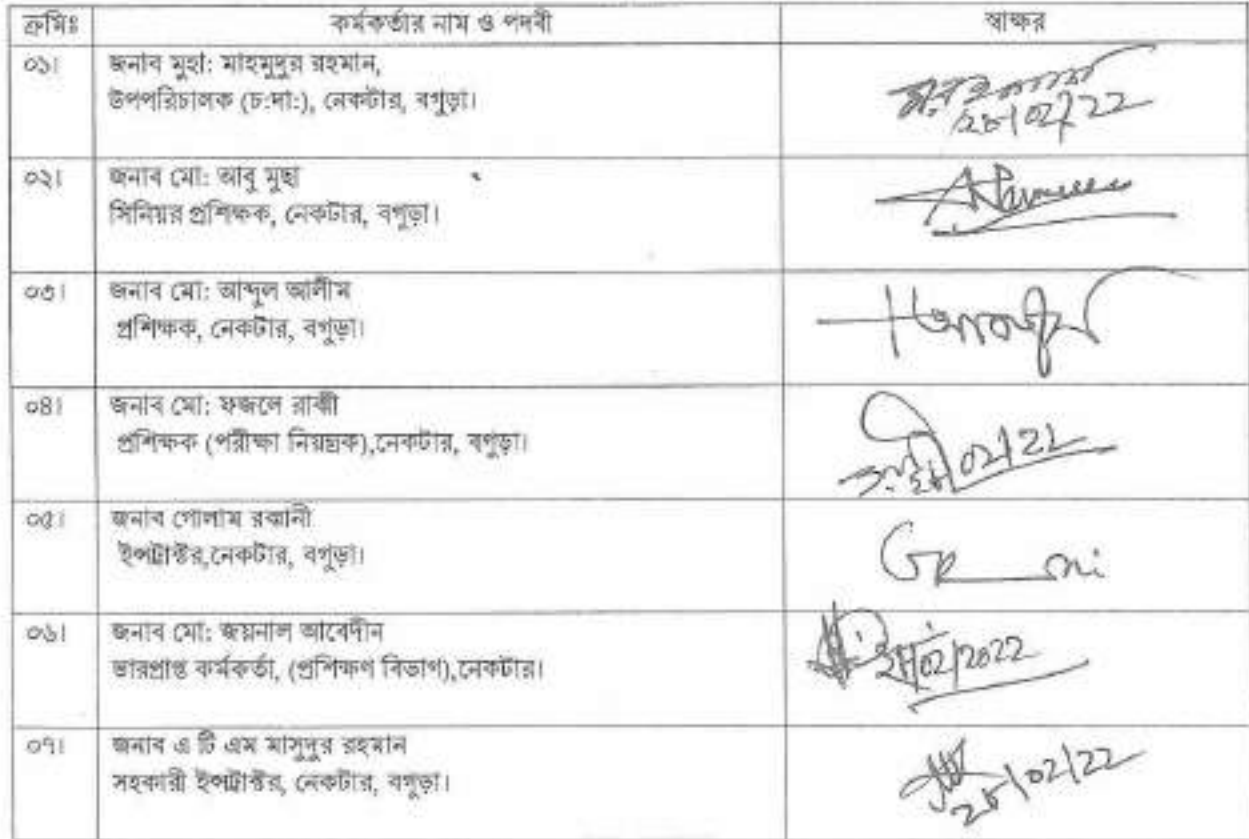 ক্রমিঃ কর্মকর্তার নাম ও পদবী স্বাক্ষর
০১। জনাব মুহা: মাহমুদুর রহমান,
উপপরিচালক (চ:দা:), নেকটার, বগুড়া।
28/02/22
০২। জনাব মো: আবু মুছা
সিনিয়র প্রশিক্ষক, নেকটার, বগুড়া।
০৩। জনাব মো: আব্দুল আলীম
প্রশিক্ষক, নেকটার, বগুড়া।
০৪। জনাব মো: ফজলে রাব্বী
প্রশিক্ষক (পরীক্ষা নিয়ন্ত্রক),নেকটার, বগুড়া।
02/22
০৫। জনাব গোলাম রব্বানী
ইন্সট্রাক্টর,নেকটার, বগুড়া।
০৬। জনাব মো: জয়নাল আবেদীন
ভারপ্রাপ্ত কর্মকর্তা, (প্রশিক্ষণ বিভাগ),নেকটার।
02/2022
০৭। জনাব এ টি এম মাসুদুর রহমান
সহকারী ইন্সট্রাক্টর, নেকটার, বগুড়া।
২৮/02/22